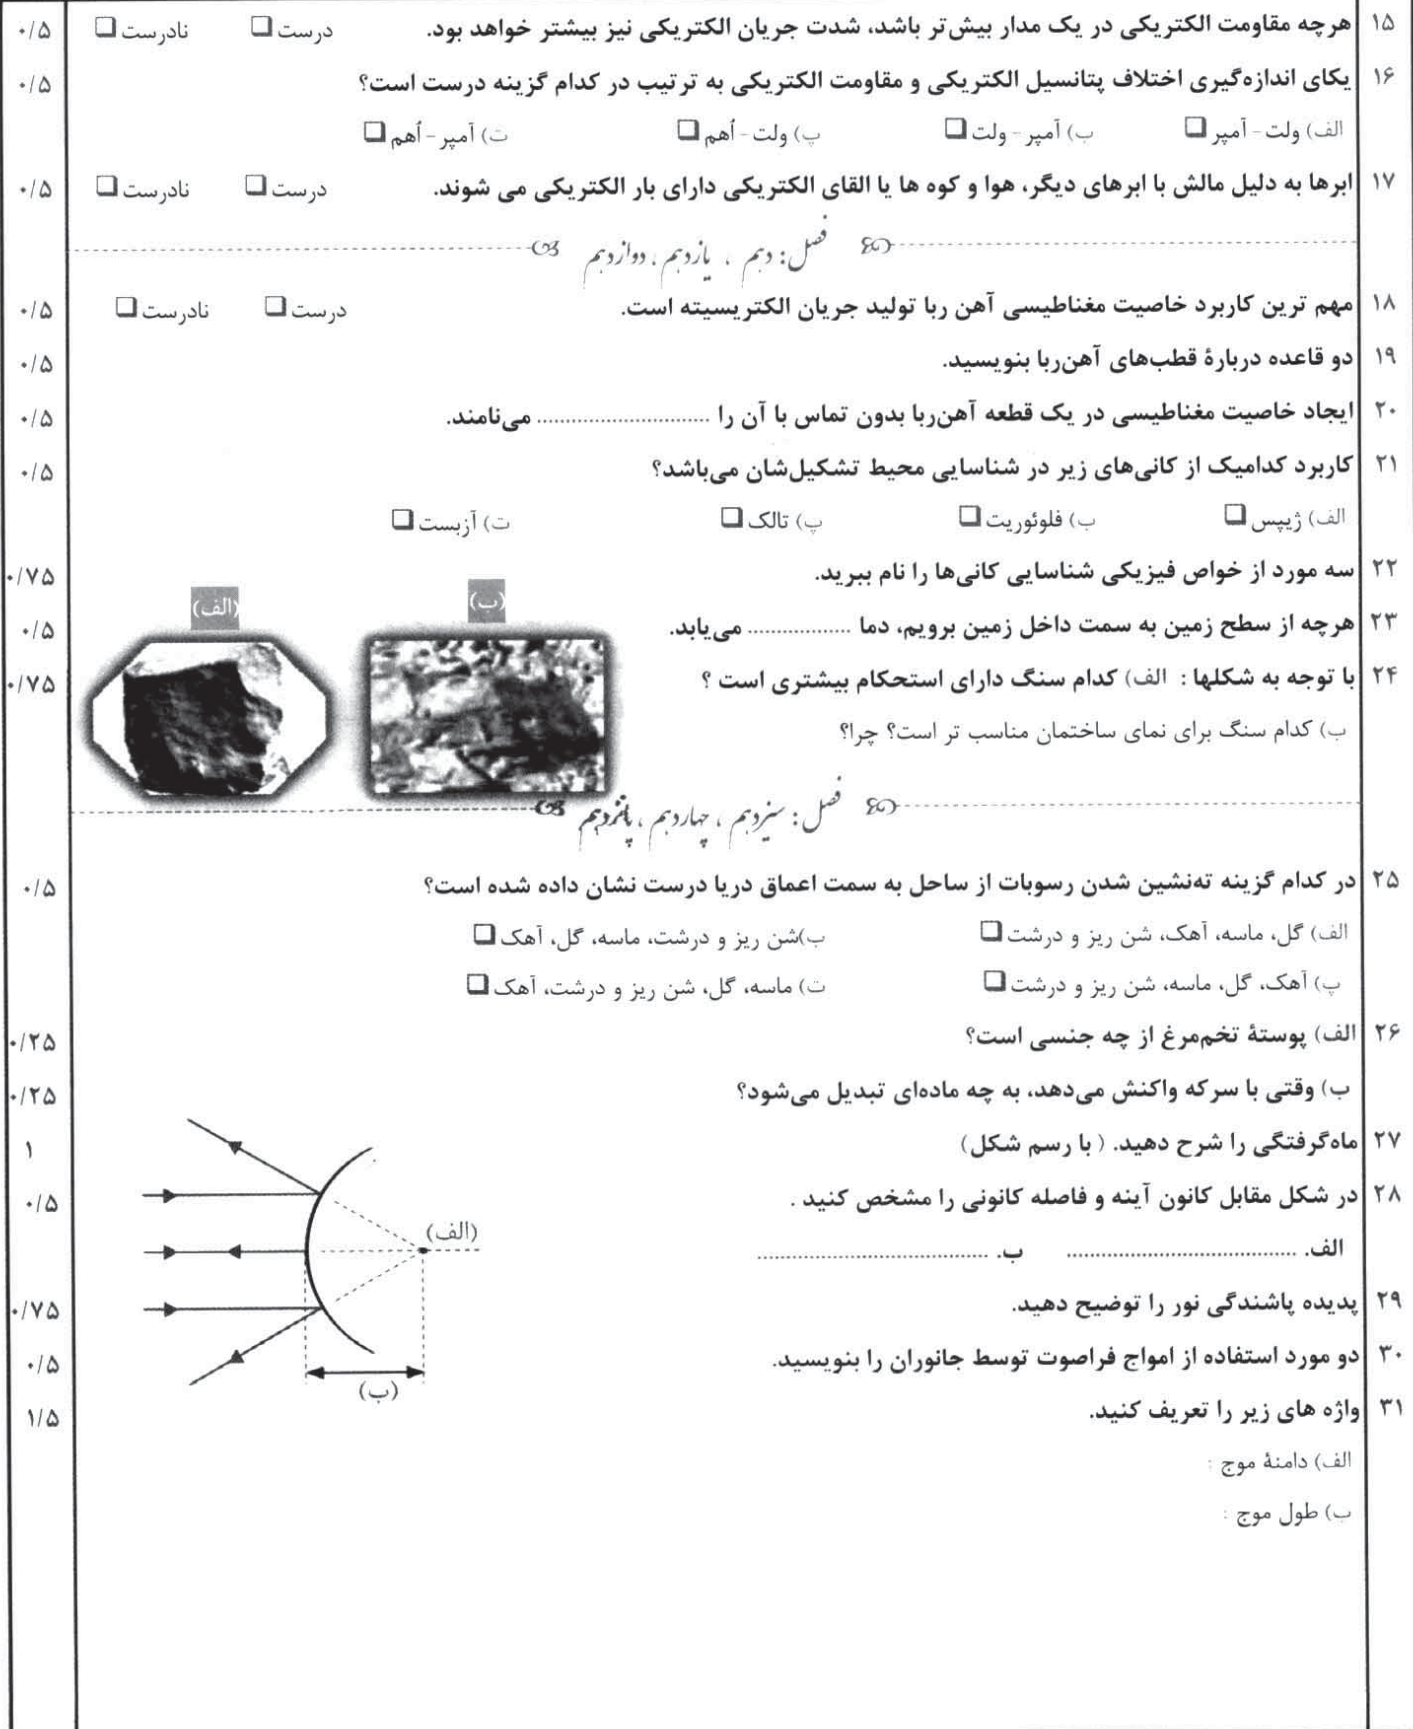 ۱۵ هرچه مقاومت الکتریکی در یک مدار بیش‌تر باشد، شدت جریان الکتریکی نیز بیشتر خواهد بود. درست ❑ نادرست ❑ ۰/۵
۱۶ یکای اندازه‌گیری اختلاف پتانسیل الکتریکی و مقاومت الکتریکی به ترتیب در کدام گزینه درست است؟ ۰/۵
الف) ولت- آمپر ❑ ب) آمپر- ولت ❑ پ) ولت- اُهم ❑ ت) آمپر- اُهم ❑
۱۷ ابرها به دلیل مالش با ابرهای دیگر، هوا و کوه ها یا القای الکتریکی دارای بار الکتریکی می شوند. درست ❑ نادرست ❑ ۰/۵
فصل: دهم ، یازدهم، دوازدهم
۱۸ مهم ترین کاربرد خاصیت مغناطیسی آهن ربا تولید جریان الکتریسیته است. درست ❑ نادرست ❑ ۰/۵
۱۹ دو قاعده دربارهٔ قطب‌های آهن‌ربا بنویسید. ۰/۵
۲۰ ایجاد خاصیت مغناطیسی در یک قطعه آهن‌ربا بدون تماس با آن را .............................. می‌نامند. ۰/۵
۲۱ کاربرد کدامیک از کانی‌های زیر در شناسایی محیط تشکیل‌شان می‌باشد؟ ۰/۵
الف) ژیپس ❑ ب) فلوئوریت ❑ پ) تالک ❑ ت) آزبست ❑
۲۲ سه مورد از خواص فیزیکی شناسایی کانی‌ها را نام ببرید. ۰/۷۵
(ب) (الف)
۲۳ هرچه از سطح زمین به سمت داخل زمین برویم، دما .................. می‌یابد. ۰/۵
۲۴ با توجه به شکلها : الف) کدام سنگ دارای استحکام بیشتری است ؟ ۰/۷۵
ب) کدام سنگ برای نمای ساختمان مناسب تر است؟ چرا؟
فصل: سیزدهم ، چهاردهم ، پانزدهم
۲۵ در کدام گزینه ته‌نشین شدن رسوبات از ساحل به سمت اعماق دریا درست نشان داده شده است؟ ۰/۵
الف) گل، ماسه، آهک، شن ریز و درشت ❑ ب)شن ریز و درشت، ماسه، گل، آهک ❑
پ) آهک، گل، ماسه، شن ریز و درشت ❑ ت) ماسه، گل، شن ریز و درشت، آهک ❑
۲۶ الف) پوستهٔ تخم‌مرغ از چه جنسی است؟ ۰/۲۵
ب) وقتی با سرکه واکنش می‌دهد، به چه ماده‌ای تبدیل می‌شود؟ ۰/۲۵
۲۷ ماه‌گرفتگی را شرح دهید. ( با رسم شکل) ۱
۲۸ در شکل مقابل کانون آینه و فاصله کانونی را مشخص کنید . ۰/۵
(الف)
الف. ........................................ ب. ........................................
۲۹ پدیده پاشندگی نور را توضیح دهید. ۰/۷۵
۳۰ دو مورد استفاده از امواج فراصوت توسط جانوران را بنویسید. ۰/۵
(ب)
۳۱ واژه های زیر را تعریف کنید. ۱/۵
الف) دامنهٔ موج :
ب) طول موج :